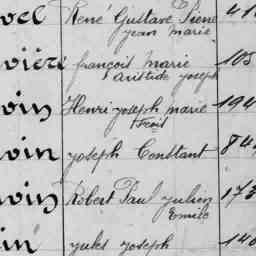 vel René Gustave Pierre 41
Jean Marie
vière françois marie 105
aristide joseph
vin Henri joseph marie 194
vin joseph Constant 84
vin Robert Paul julien 173
Emile
in jules joseph 140